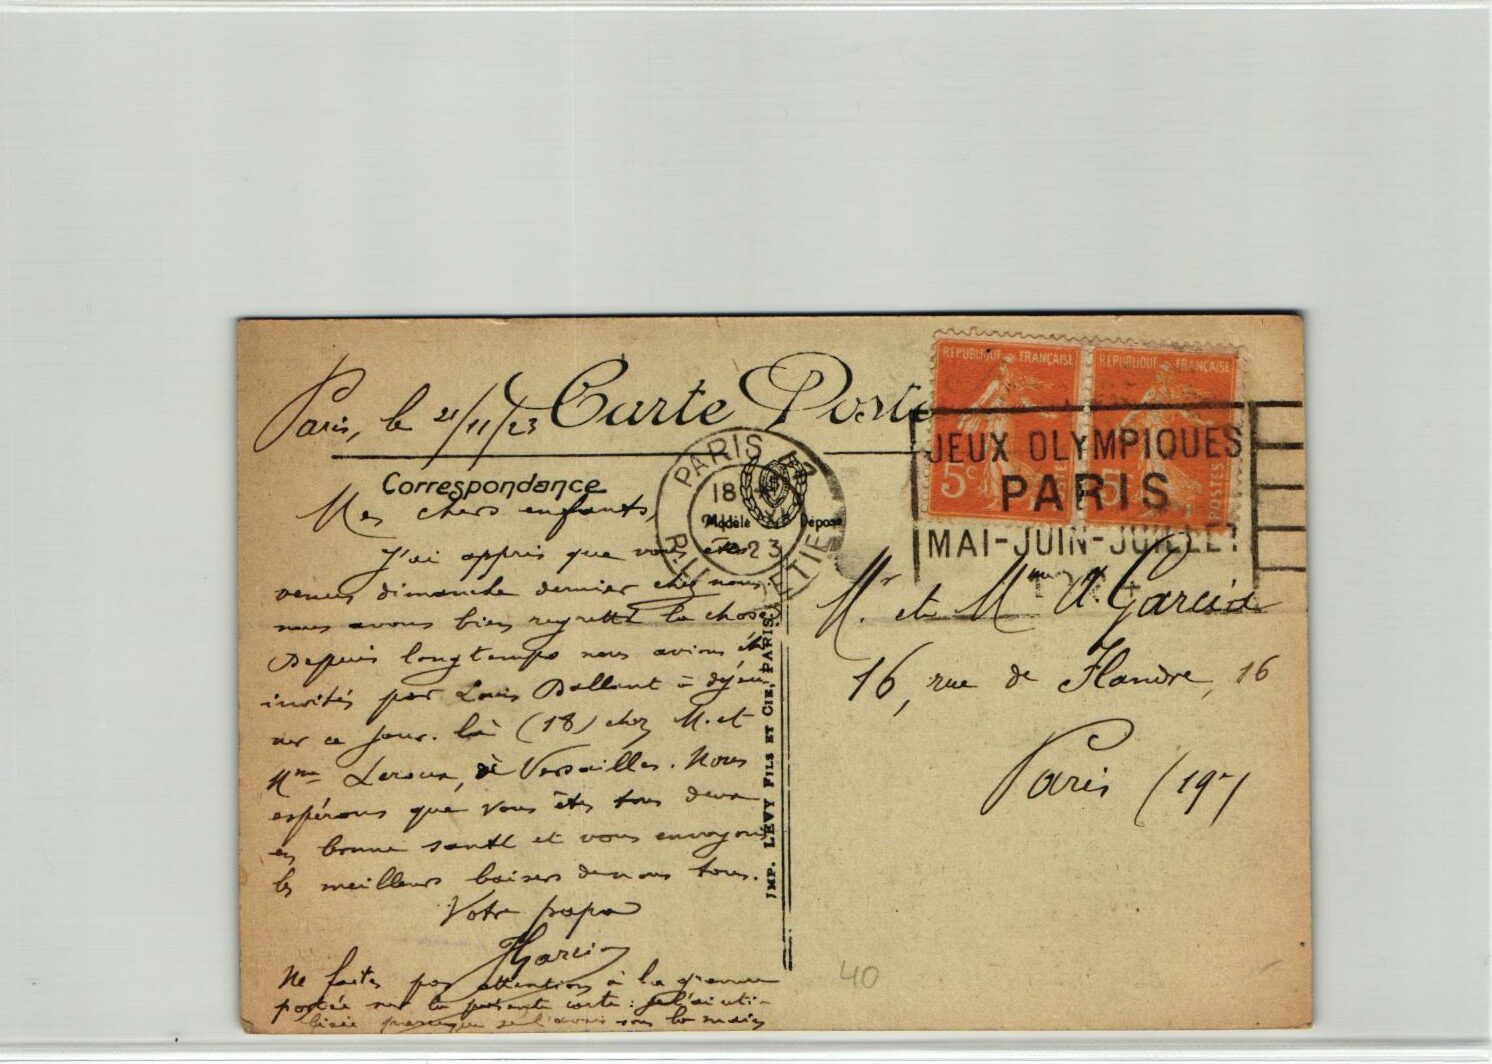 Paris, le 21/11/23
Carte Posta
Correspondance
Mes chers enfants,
J'ai appris que vous êtes
venus dimanche dernier chez nous.
nous avons bien regretté la chose.
Depuis longtemps nous avions été
invités par Louis Ballant à déjeu
ner ce jour-là (18) chez M. et
Mme Leroux, à Versailles. Nous
espérons que vous êtes tous deux
en bonne santé et vous envoyons
les meilleurs baisers de nous tous.
Votre papa
Garcia
Ne faites pas attention à la gravure
portée sur la présente carte : je l'ai uti-
lisée parce que je l'avais sous la main
PARIS 17
18
XI
23
Modèle Déposé
IMP. LÉVY FILS ET CIE, PARIS.
REPUBLIQUE FRANÇAISE
5c
POSTES
REPUBLIQUE FRANÇAISE
5c
POSTES
JEUX OLYMPIQUES
PARIS
MAI-JUIN-JUILLET
1924
Mr et Mme A. Garcia
16, rue de Flandre, 16
Paris (19e)
40